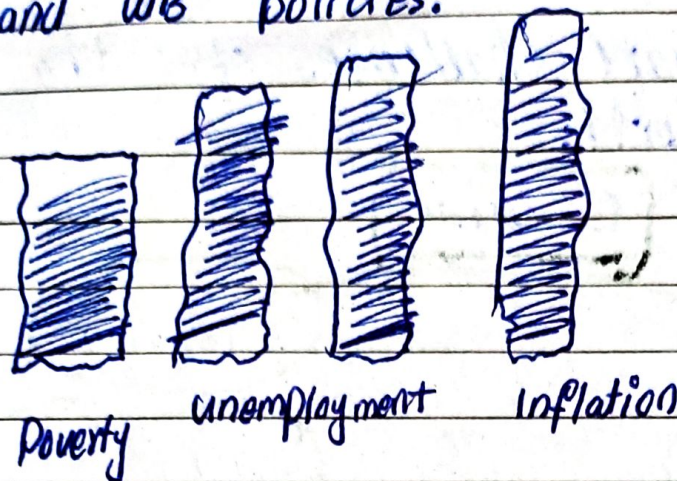 and policies.
Poverty unemployment Inflation